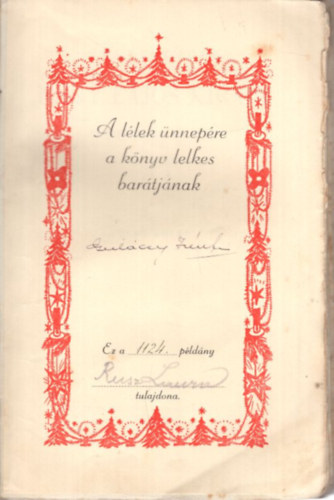 A lélek ünnepére
a könyv lelkes
barátjának
Ez a 1124. példány
tulajdona.